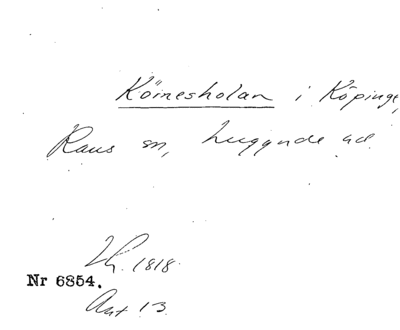 Körnesholan i Köpinge,
Raus sn, Luggude hd.
Lh. 1818
Nr 6854.
Ant 13